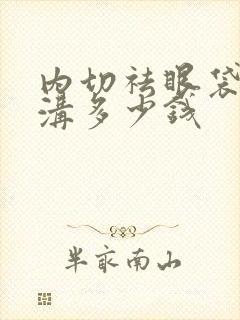 内切祛眼袋
溝多少錢
半畝南山